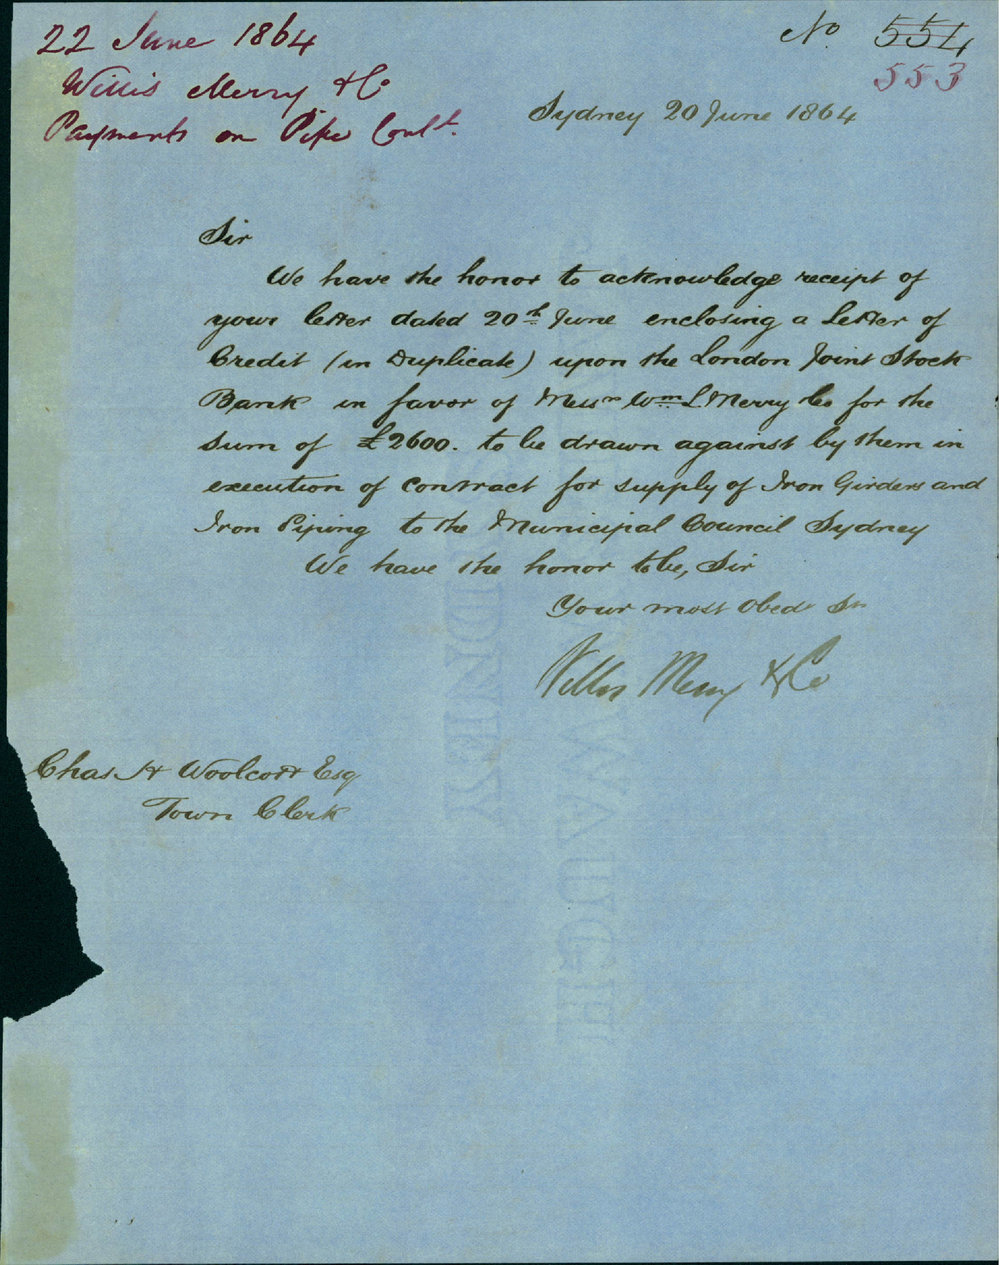 22 June 1864
Willis Merry & Co
Payments on Pipe Cont.
No 554
553
Sydney 20 June 1864
Sir
We have the honor to acknowledge receipt of
your letter dated 20th June enclosing a Letter of
Credit (in Duplicate) upon the London Joint Stock
Bank in favor of Messrs Wm L Merry Co for the
sum of £2600. to be drawn against by them in
execution of contract for supply of Iron Girders and
Iron Piping to the Municipal Council Sydney
We have the honor to be, Sir
Your most Obedt St
Willis Merry & Co
Chas H Woolcott Esq
Town Clerk
SYDNEY
WAUGH